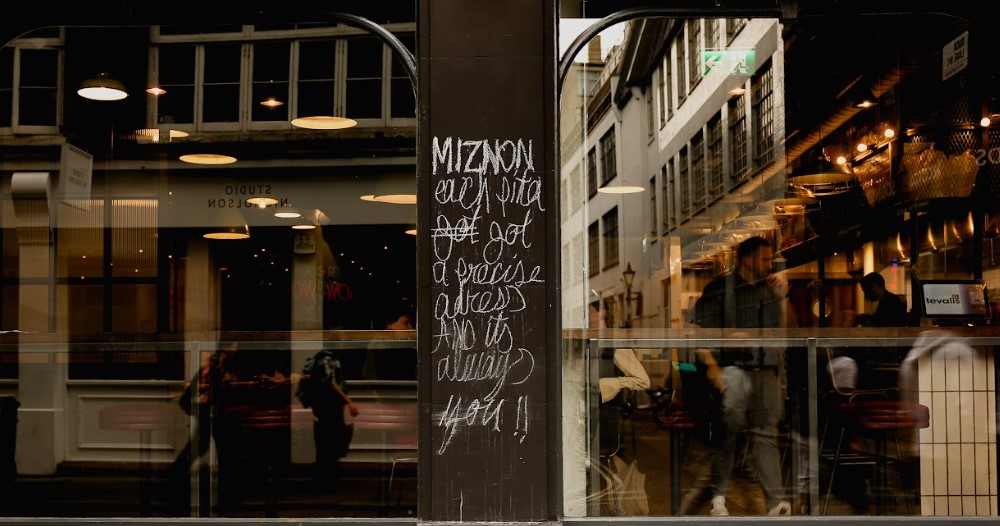 MIZNON
each pita
got got
a precise
adress
AND its
always
you!!
STUDIO
NICHOLSON
tevalis